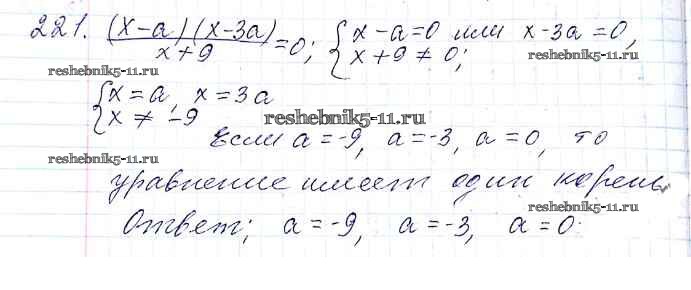 221. (x-a)(x-3a)/x+9 = 0; { x-a=0 или x-3a=0,
x+9≠0;
reshebnik5-11.ru
reshebnik5-11.ru
{ x=a, x=3a
x≠-9
reshebnik5-11.ru
Если a=-9, a=-3, a=0, то
reshebnik5-11.ru
уравнение имеет один корень
reshebnik5-11.ru
Ответ; a=-9, a=-3, a=0.